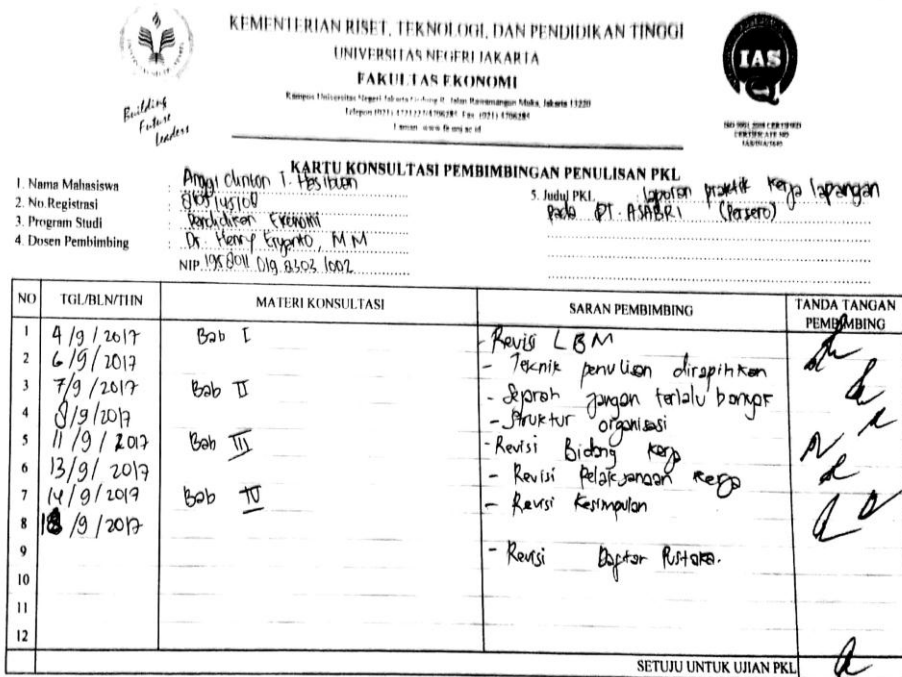 KEMENTERIAN RISET, TEKNOLOGI, DAN PENDIDIKAN TINGGI
UNIVERSITAS NEGERI JAKARTA
FAKULTAS EKONOMI
Kampus Universitas Negeri Jakarta Gedung R, Jalan Rawamangun Muka, Jakarta 13220
Building
Future
Leaders
IAS
ISO 9001:2008 CERTIFIED
CERTIFICATE NO
KARTU KONSULTASI PEMBIMBINGAN PENULISAN PKL
1. Nama Mahasiswa : Anggi Clinton T. Hasibuan
2. No.Registrasi :
3. Program Studi : Pendidikan Ekonomi
4. Dosen Pembimbing : Dr. Henry Eryanto, MM
NIP 1958011 019 8303 1002
5. Judul PKL : laporan praktik kerja lapangan
Pada PT. ASABRI (Persero)
NO TGL/BLN/THN MATERI KONSULTASI SARAN PEMBIMBING TANDA TANGAN PEMBIMBING
1 4/9/2017 Bab I - Revisi LBM
2 6/9/2017 - Teknik penulisan dirapihkan
3 7/9/2017 Bab II - Sejarah jangan terlalu banyak
4 8/9/2017 - Struktur organisasi
5 11/9/2017 Bab III - Revisi Bidang kerja
6 13/9/2017 - Revisi Pelaksanaan kerja
7 14/9/2017 Bab IV - Revisi Kesimpulan
8 18/9/2017
9 - Revisi Daftar Pustaka.
10
11
12
SETUJU UNTUK UJIAN PKL